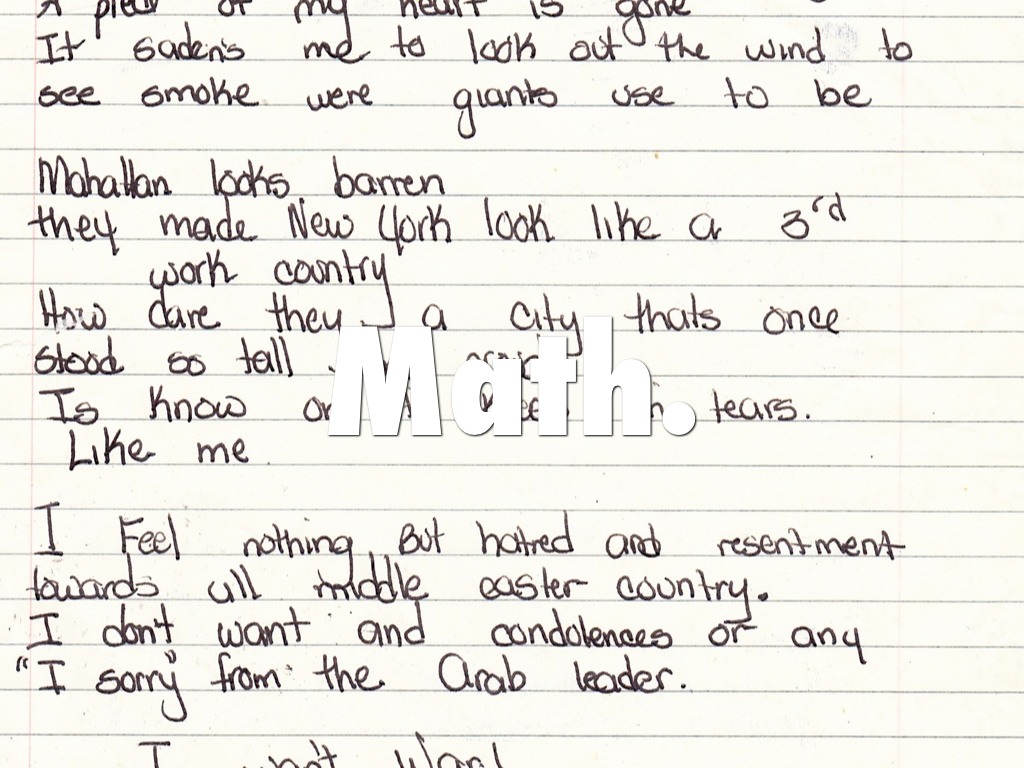 of my heart is gone
It sadens me to look out the wind to
see smoke were giants use to be
Mahattan looks barren
they made New York look like a 3rd
work country
How dare they a city thats once
stood so tall
Is know tears.
Like me
Math.
I Feel nothing But hatred and resentment
towards all middle easter country.
I don't want and condolences or any
"I sorry" from the Arab leader.
I